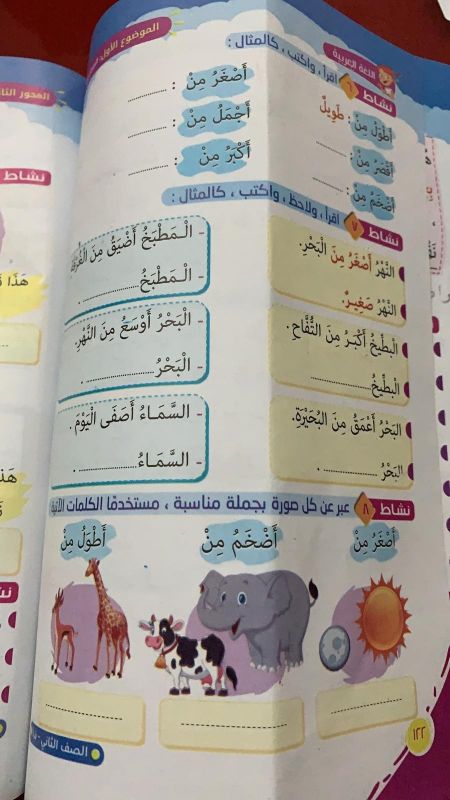 الموضوع الأول
اللغة العربية
نشاط ٦ اقرأ ، واكتب ، كالمثال :
أَطْوَلُ مِنْ : طَوِيلٌ
أَصْغَرُ مِنْ : ............
أَقْصَرُ مِنْ : ............
أَجْمَلُ مِنْ : ............
أَضْخَمُ مِنْ : ............
أَكْبَرُ مِنْ : ............
نشاط ٧ اقرأ ، ولاحظ ، واكتب ، كالمثال :
النَّهْرُ أَصْغَرُ مِنَ الْبَحْرِ.
النَّهْرُ صَغِيرٌ.
- الْـمَطْبَخُ أَضْيَقُ مِنَ الْغُرْفَةِ
- الْـمَطْبَخُ ............ .
الْبِطِّيخُ أَكْبَرُ مِنَ التُّفَّاحِ.
الْبِطِّيخُ ............
- الْبَحْرُ أَوْسَعُ مِنَ النَّهْرِ.
- الْبَحْرُ ............ .
الْبَحْرُ أَعْمَقُ مِنَ الْبُحَيْرَةِ.
الْبَحْرُ ............ .
- السَّمَـاءُ أَصْفَى الْيَوْمَ .
- السَّمَـاءُ ............ .
نشاط ٨ عبر عن كل صورة بجملة مناسبة ، مستخدمًا الكلمات الآتية
أَصْغَرُ مِنْ
أَضْخَمُ مِنْ
أَطْوَلُ مِنْ
١٢٢
الصف الثاني
المحور
نشاط
هَذَا